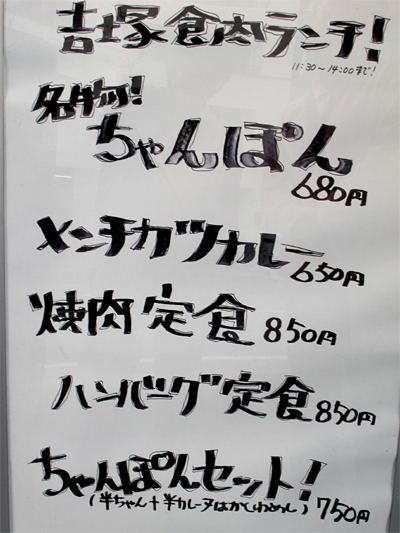 吉塚食肉ランチ！
11:30～14:00まで！
名物！
ちゃんぽん
680円
メンチカツカレー
650円
焼肉定食 850円
ハンバーグ定食 850円
ちゃーんぽんセット！
(半ちゃん＋半カレーヌはかしわめし) 750円